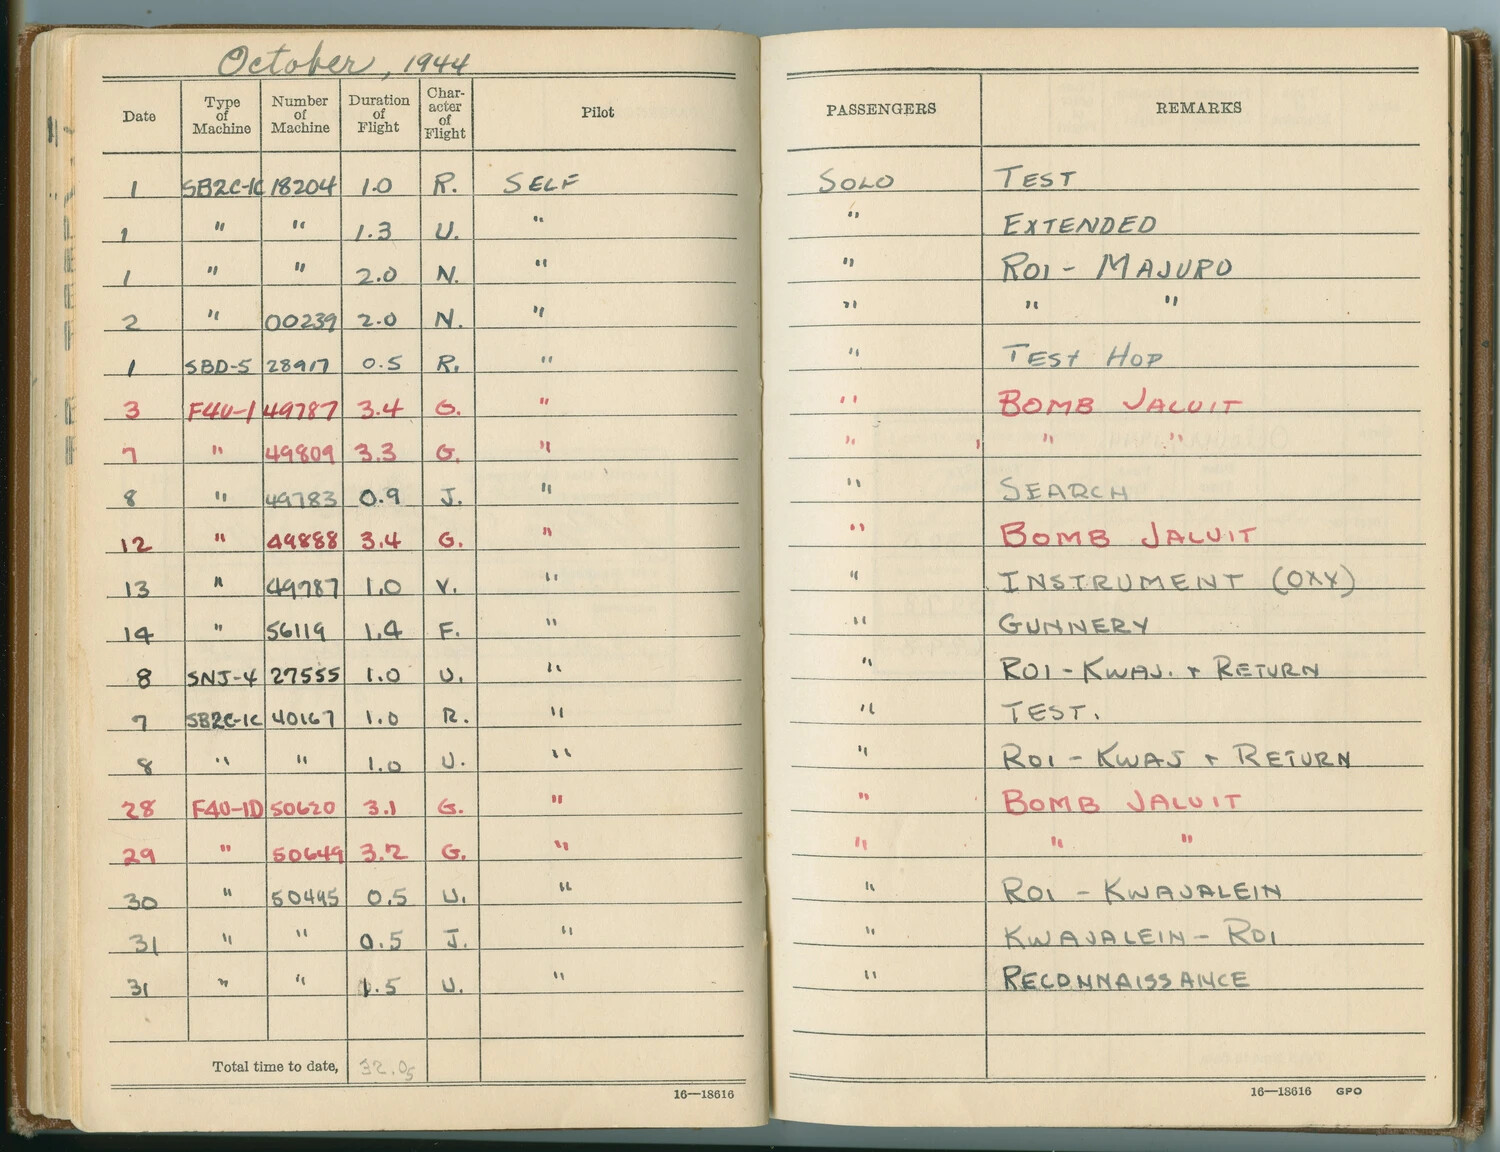 October, 1944
Date Type of Machine Number of Machine Duration of Flight Character of Flight Pilot PASSENGERS REMARKS
1 SB2C-1C 18204 1.0 R. SELF SOLO TEST
1 " " 1.3 U. " " EXTENDED
1 " " 2.0 N. " " ROI - MAJURO
2 " 00239 2.0 N. " " " "
1 SBD-5 28917 0.5 R. " " TEST HOP
3 F4U-1 49787 3.4 G. " " BOMB JALUIT
7 " 49809 3.3 G. " " " "
8 " 49783 0.9 J. " " SEARCH
12 " 49888 3.4 G. " " BOMB JALUIT
13 " 49787 1.0 V. " " INSTRUMENT (OXY)
14 " 56119 1.4 F. " " GUNNERY
8 SNJ-4 27555 1.0 U. " " ROI - KWAJ. + RETURN
7 SB2C-1C 40167 1.0 R. " " TEST.
8 " " 1.0 U. " " ROI - KWAJ + RETURN
28 F4U-1D 50620 3.1 G. " " BOMB JALUIT
29 " 50649 3.2 G. " " " "
30 " 50495 0.5 U. " " ROI - KWAJALEIN
31 " " 0.5 J. " " KWAJALEIN - ROI
31 " " 1.5 U. " " RECONNAISSANCE
Total time to date, 32.0
16—18616 16—18616 GPO